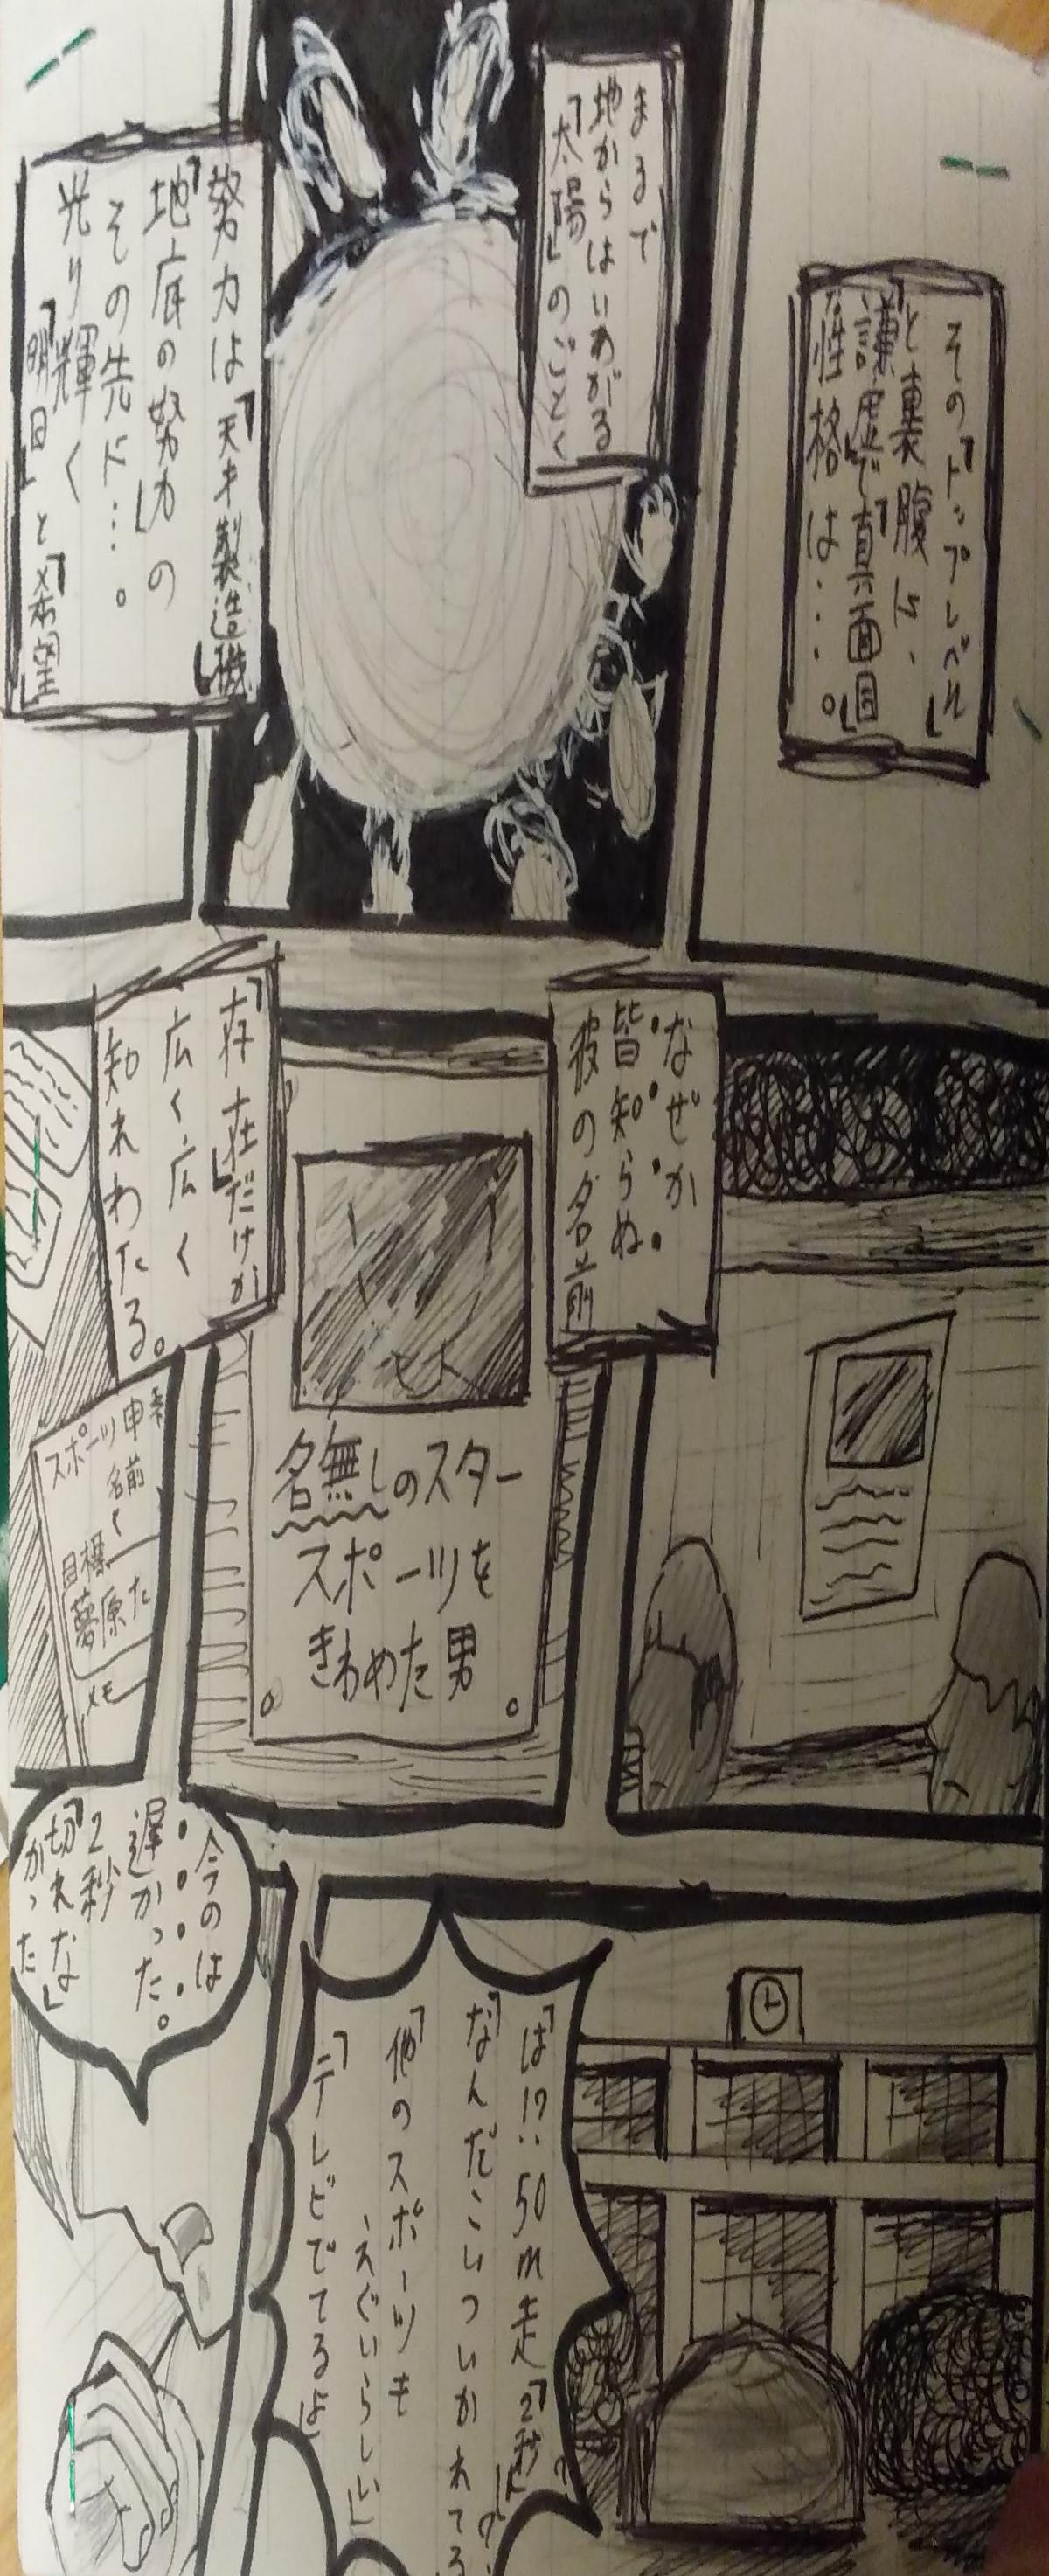 その「トップレベル」
と裏腹に、
「謙虚」で「真面目」
な性格は・・・。
まるで
地からはいあがる
「太陽」のごとく
努力は「天才製造機」
「地底の努力」の
その先に…。
光り輝く
「明日」と「希望」
なぜか
皆知らぬ
彼の名前
名無しのスター
スポーツを
きわめた男
「存在」だけが
広く広く
知れわたる。
スポーツ申
名前
目標
夢原た
メモ
「は!?50m走「2秒」!?」
「なんだこいついかれてる
「他のスポーツも
えぐいらしい」
「テレビででてるよ」
今のは
遅かった。
2秒
「切れな
かった」